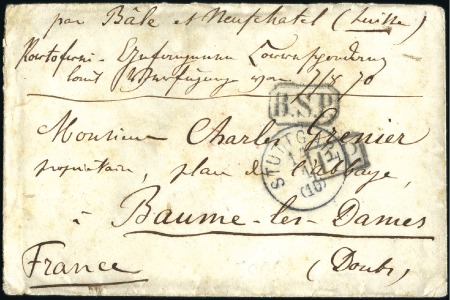 par Bâle et Neufchatel (Suisse)
Portofreie Correspondenz
laut Verfügung vom 7/8 70
B.S.P.
Monsieur Charles Grenier
STUTTGART
propriétaire, place de l'abbaye,
à Baume-les-Dames
France (Doubs)